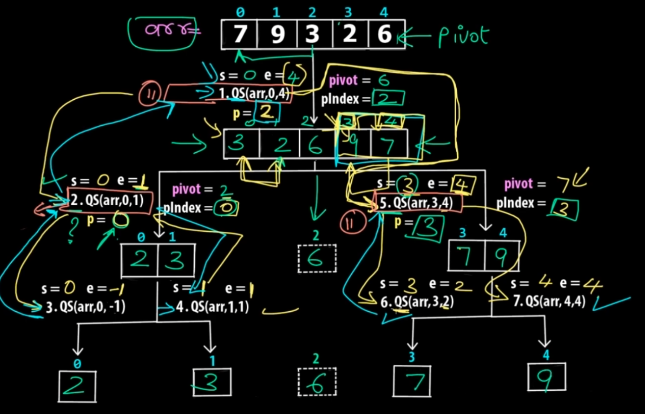 0 1 2 3 4
arr= 7 9 3 2 6 ← pivot
s = 0 e = 4
11 1. QS(arr,0,4)
pivot = 6
pIndex = 2
p = 2
2 3 4
3 2 6 9 7
s = 0 e = 1
2. QS(arr,0,1)
p = 0
?
pivot = 2
pIndex = 0
s = 3 e = 4
5. QS(arr,3,4)
11 p = 3
pivot = 7
pIndex = 3
0 1
2 3
2
6
3 4
7 9
s = 0 e = -1
3. QS(arr,0,-1)
s = 1 e = 1
4. QS(arr,1,1)
s = 3 e = 2
6. QS(arr,3,2)
s = 4 e = 4
7. QS(arr,4,4)
0 1 2 3 4
2 3 6 7 9